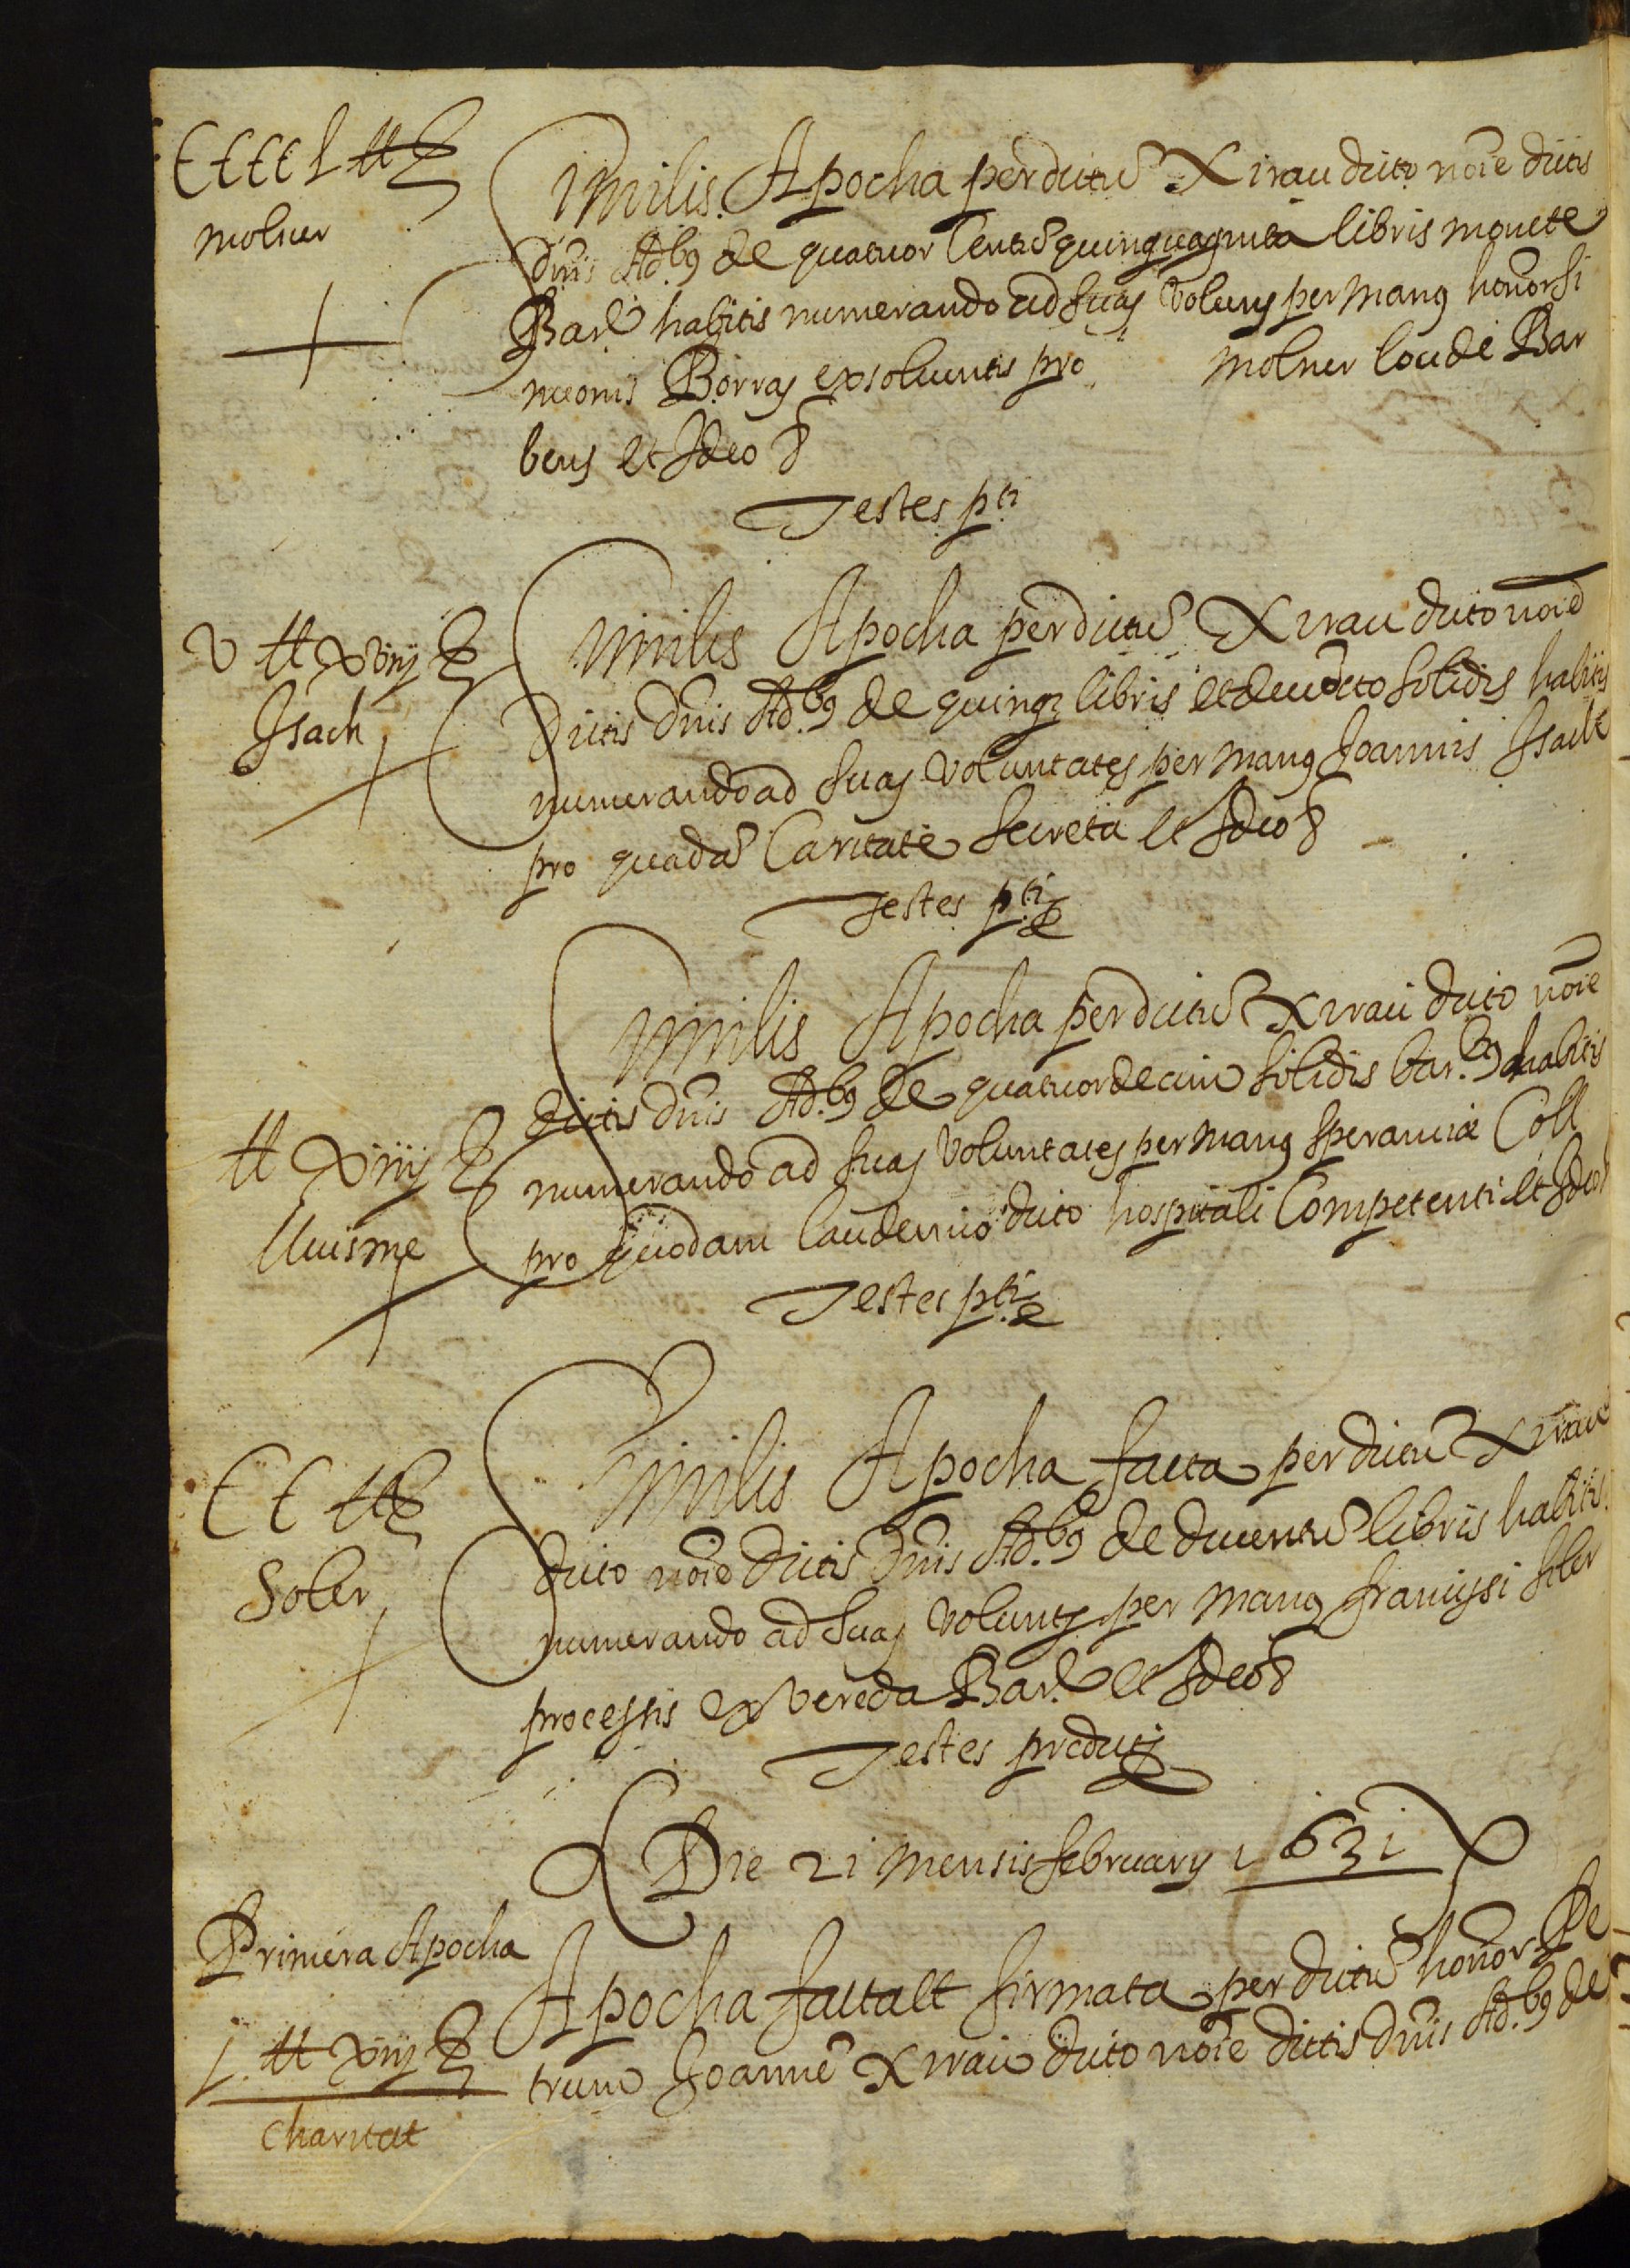 CCCCL ℔ ß
molner
Similis Apocha per dictũ Xirau dicto nõie dictis
dnis Adb9 de quatuor Centũ quinquaginta libris monete
Bar.ẽ habitis numerando ad suas volunt̃s per manꝰ honor si
meonis Borras exsoluentis pro molner loude Bar
bens et Ideo &
Testes p.ti
V ℔ xviij ß
Isach
Similis Apocha per dictũ Xirau dicto nõie
Dictis dnis Adb9 de quinqꝫ libris et decẽ octo solidis habitis
numerando ad suas voluntates per manꝰ Joannis Isach
pro quadã Caritate secreta et Ideo &
Testes p.ti
Similis Apocha per dictũ Xirau dicto nõie
dictis dnis Adb9 de quatuordecim solidis bar.b9 habitis
℔ xiiij ß
numerando ad suas voluntates per manꝰ sperancie Coll
lluisme
pro quodam laudemio dicto hospitali Competenti et Ideo &
Testes p.ti
Similis Apocha facta per dictũ Xirau
CC ℔ ß
dicto nõie dictis dnis Adb9 de ducentũ libris habitis
Soler
numerando ad suas volunt̃s per manꝰ francisci soler
processis ex vereda Bar.ẽ et Ideo &
Testes predicti
Die 21 mensis february 1631
Primera Apocha
Apocha facta et firmata per dictũ honor. Pe
L ℔ xiij ß
trum Joannẽ Xirau dicto nõie dictis dnis Adb9 de
Charitat